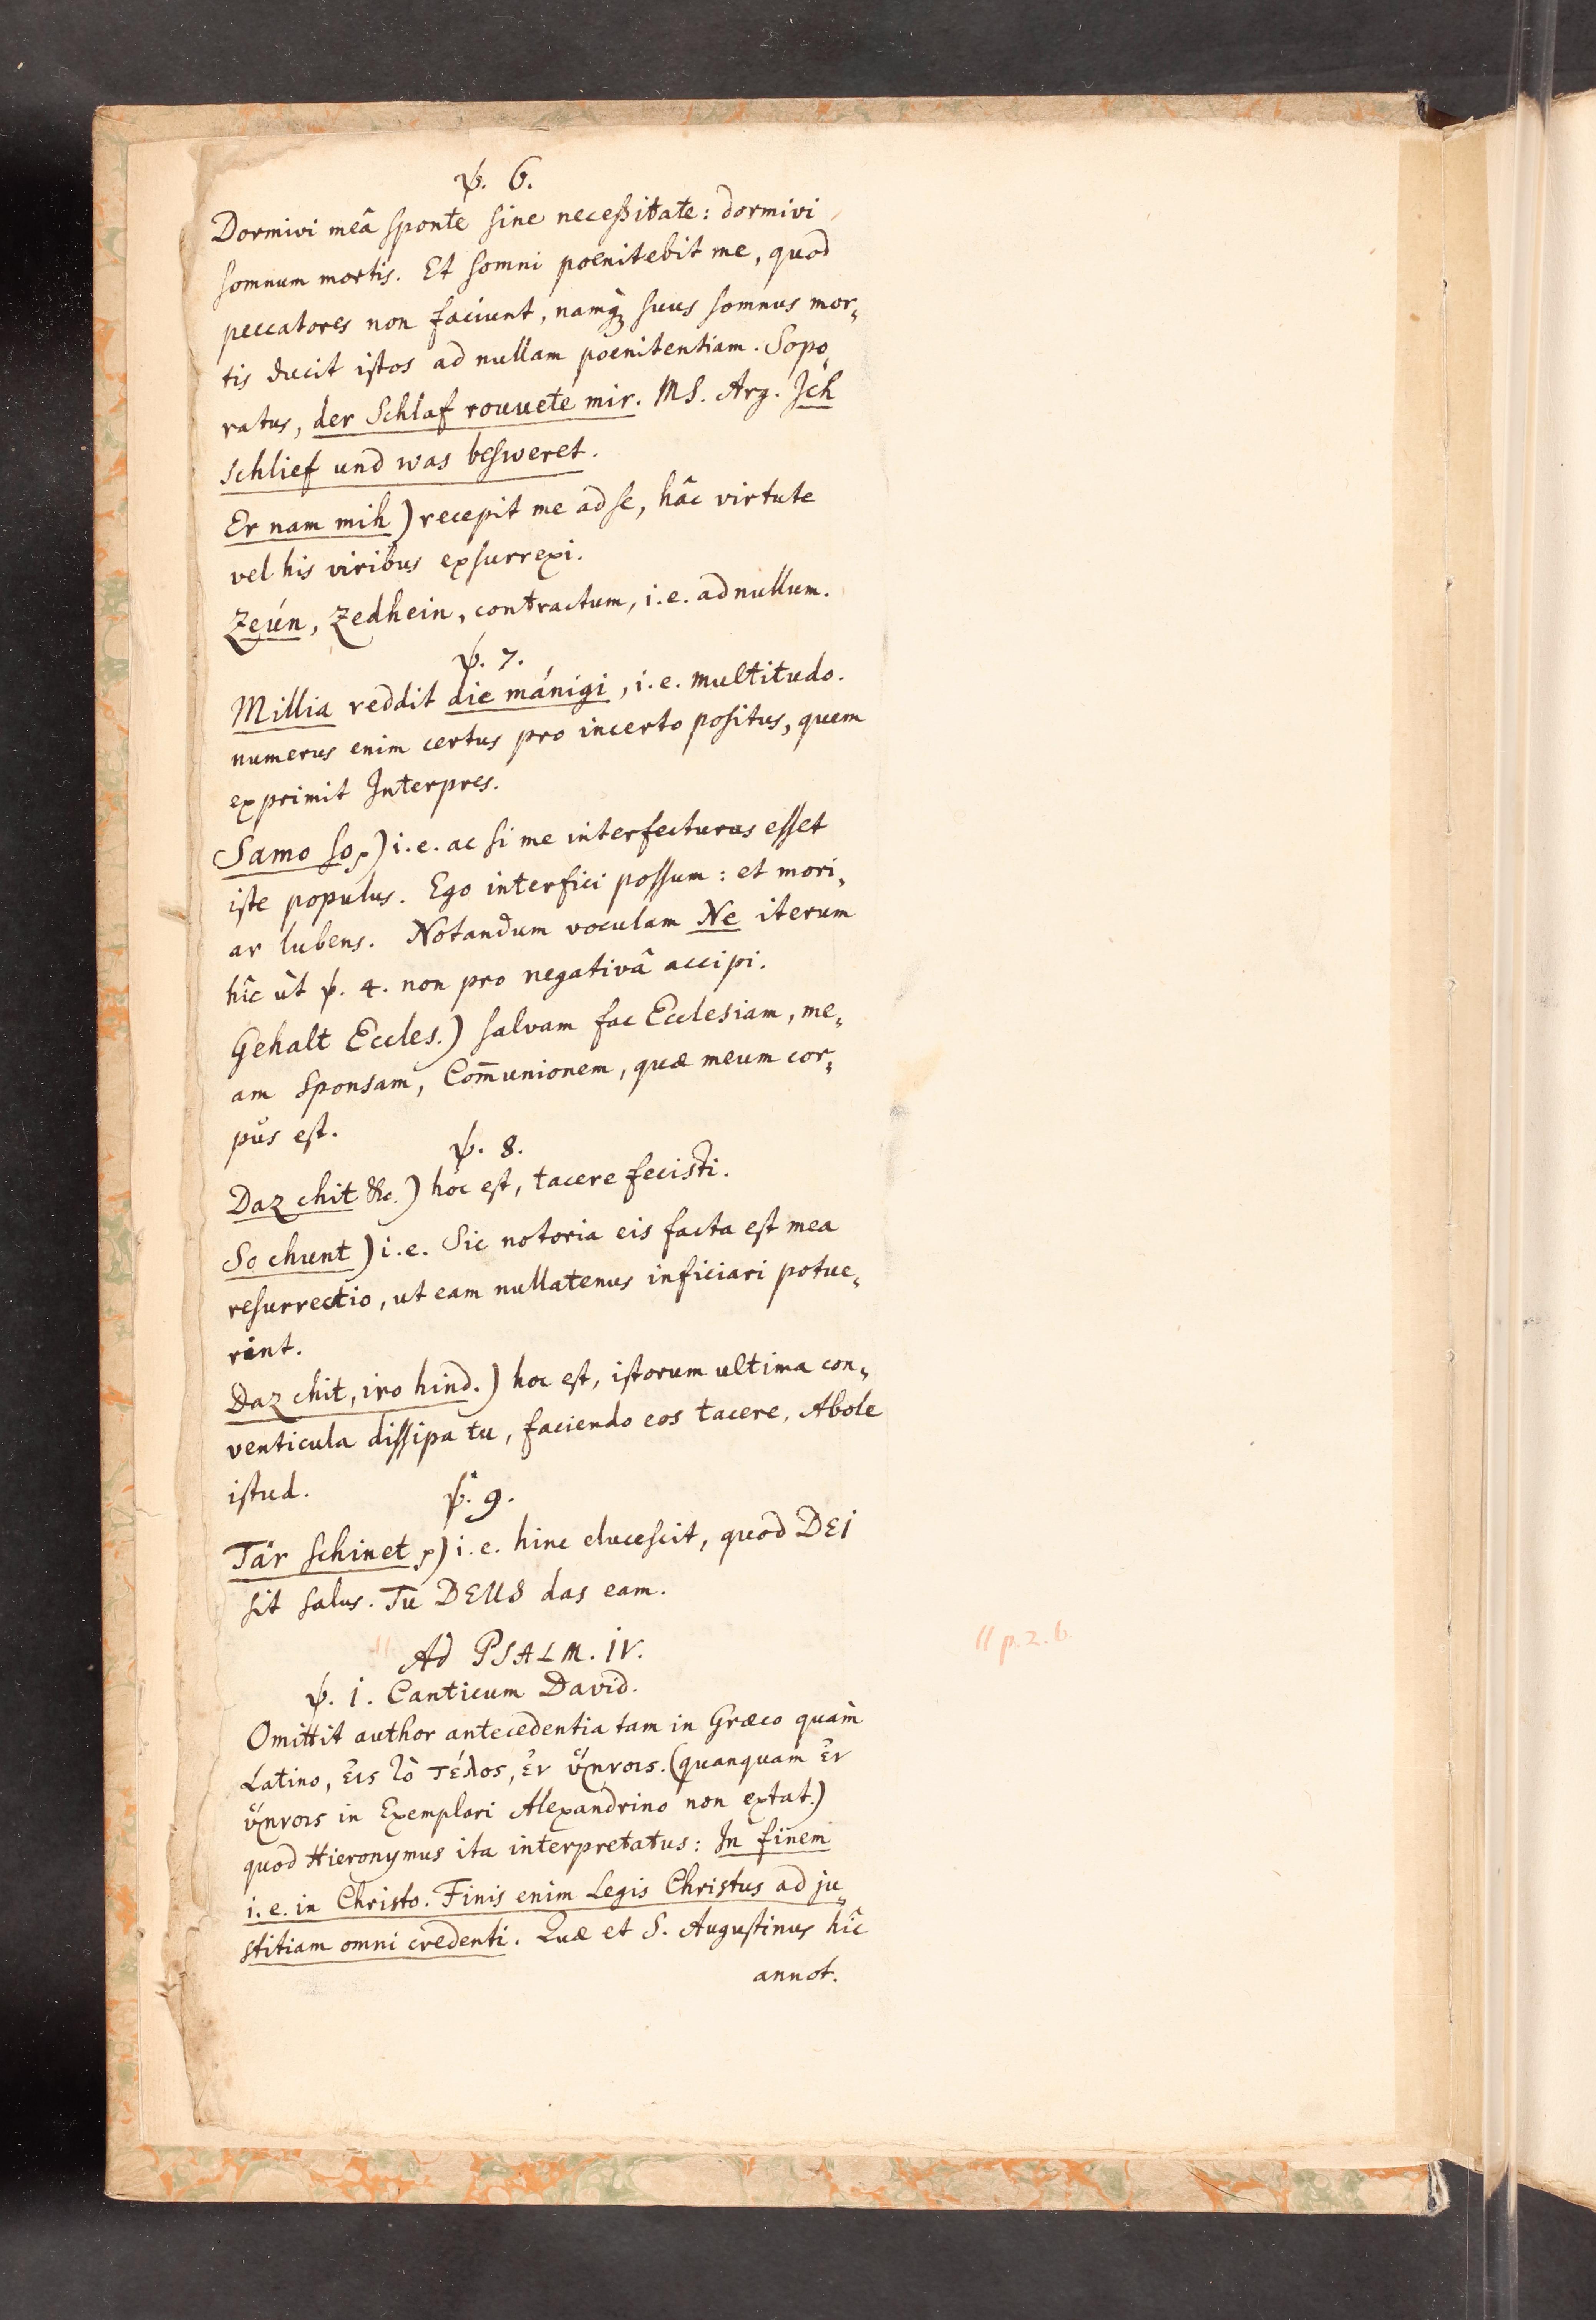 ꝟ. 6.
Dormivi meâ sponte sine neceßitate: dormivi
somnum mortis. Et somni poenitebit me, quod
peccatores non faciunt, namq; suus somnus mor„
tis ducit istos ad nullam poenitentiam. Sopo„
ratus, der Schlaf rouuete mir. MS. Arg. Jch
schlief und was besweret.
Er nam mih) recepit me ad se, hâc virtute
vel his viribus exsurrexi.
Zeún, Zedhein, contractum, i.e. ad nullum.
ꝟ. 7.
Millia reddit die mánigi, i.e. multitudo.
numerus enim certus pro incerto positus, quem
exprimit Interpres.
Samo so ꝛ) i.e. ac si me interfecturus esset
iste populus. Ego interfici possum: et mori„
ar lubens. Notandum voculam Ne iterum
hîc ùt ꝟ. 4. non pro negativâ accipi.
Gehalt Eccles.) salvam fac Ecclesiam, me„
am sponsam, Com̄unionem, quæ meum cor„
pus est.
ꝟ. 8.
Daz chit &c.) hoc est, tacere fecisti.
So chunt) i.e. Sic notoria eis facta est mea
resurrectio, ut eam nullatenus inficiari potue„
rint.
Daz chit, iro hind.) hoc est, istorum ultima con„
venticula dissipa tu, faciendo eos tacere, Abole
istud.
ꝟ. 9.
Tár schinet ꝛ) i.e. hinc elucescit, quod DEI
sit salus. Tu DEUS das eam.
Ad PSALM. IV.
11 p. 2. b.
ꝟ. 1. Canticum David.
Omittit author antecedentia tam in Græco quàm
Latino, ἐις τὸ τέλος, ἐν ὕμνοις. (quanquam ἐν
ὕμνοις in Exemplari Alexandrino non extat.)
quod Hieronymus ita interpretatus: In finem
i.e. in Christo. Finis enim Legis Christus ad ju„
stitiam omni credenti. Quæ et S. Augustinus hîc
annot.